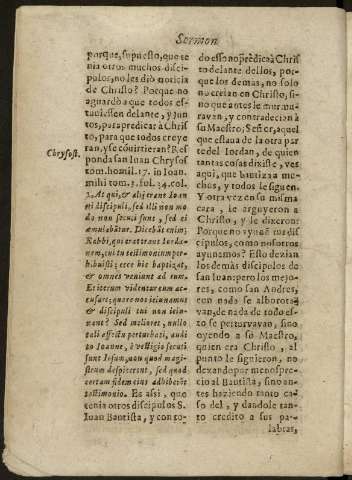 Sermon
porque, supuesto, que te
nia otros muchos disci-
pulos, no les diò noticia
de Christo? Porque no
aguardò a que todos es-
tuviessen delante, y jun
tos, para predicar à Chris
to, para que todos creye
ran, y se cõuirtieran? Res
ponda san Iuan Chrysos
Chrysost.
tom. homil. 17. in Ioan.
mihi tom. 3. fol. 34. col.
2. At qui, & alij erant Ioan
ni discipuli, sed illi non mo
do non secuti sunt, sed ei
æmulabãtur. Dicebãt enim;
Rabbi, qui erat trans Iorda-
nem, cui tu testimonium per-
hibuisti; ecce hic baptizat,
& omnes veniunt ad eum.
Et iterum videntur eum ac-
cusare; quare nos ieiunamus
& discipuli tui non ieiu-
nant? Sed meliores, nullo
tali affectu perturbati, audi
to Ioanne, è vestigio secuti
sunt Iesum, non quod magi-
strum despicerent, sed quod
certam fidem eius adhiberẽt
testimonio. Es assi, que
tenia otros discipulos S.
Iuan Bautista, y con to-
do esso no prèdica à Chris
to delante dellos, por-
que los demàs, no solo
no creian en Christo, si-
no que antes le murmu-
ravan, y contradecian à
su Maestro; Señor, aquel
que estava de la otra par
te del Iordan, de quien
tantas cosas dixiste, ves
aqui, que bautiza mu-
chos, y todos le siguen.
Y otra vez en su misma
cara, le arguyeron a
Christo, y le dixeron:
Porque no ayunã tus dis
cipulos, como nosotros
ayunamos? Esto dezian
los demàs discipulos de
san Iuan: pero los mejo-
res, como san Andres,
con nada se alborota-
van, de nada de todo es-
to se perturvavan, sino
oyendo a so Maestro,
quien era Christo, al
punto le siguieron, no
dexando por menospre-
cio al Bautista, sino an-
tes haziendo tanto ca-
so del, y dandole tan-
to credito a sus pa-
labras,